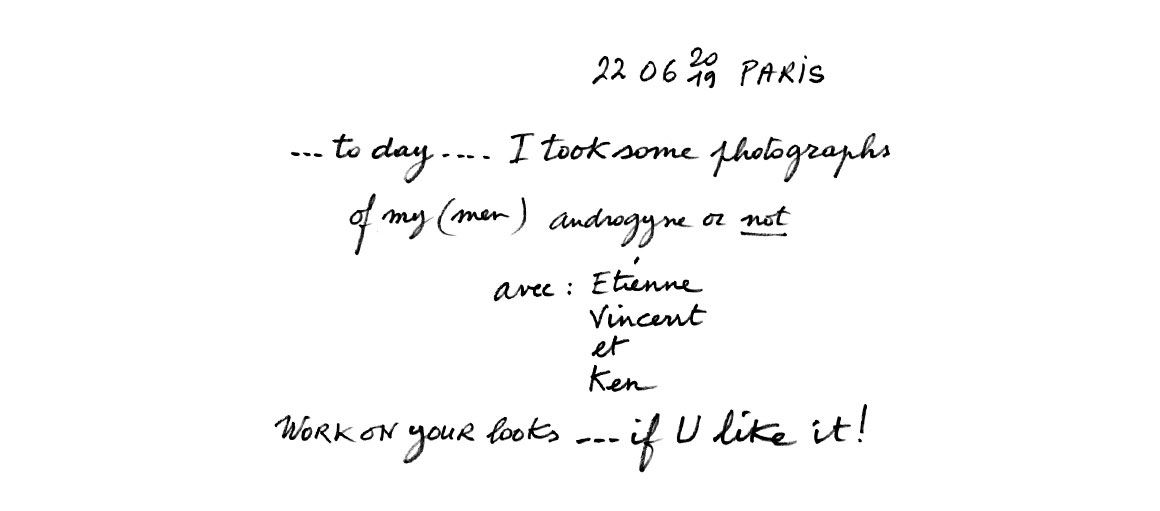 22 06 2019 PARIS
... to day .... I took some photographs
of my (men) androgyne or not
avec : Etienne
Vincent
et
Ken
WORK ON YOUR looks --- if U like it!